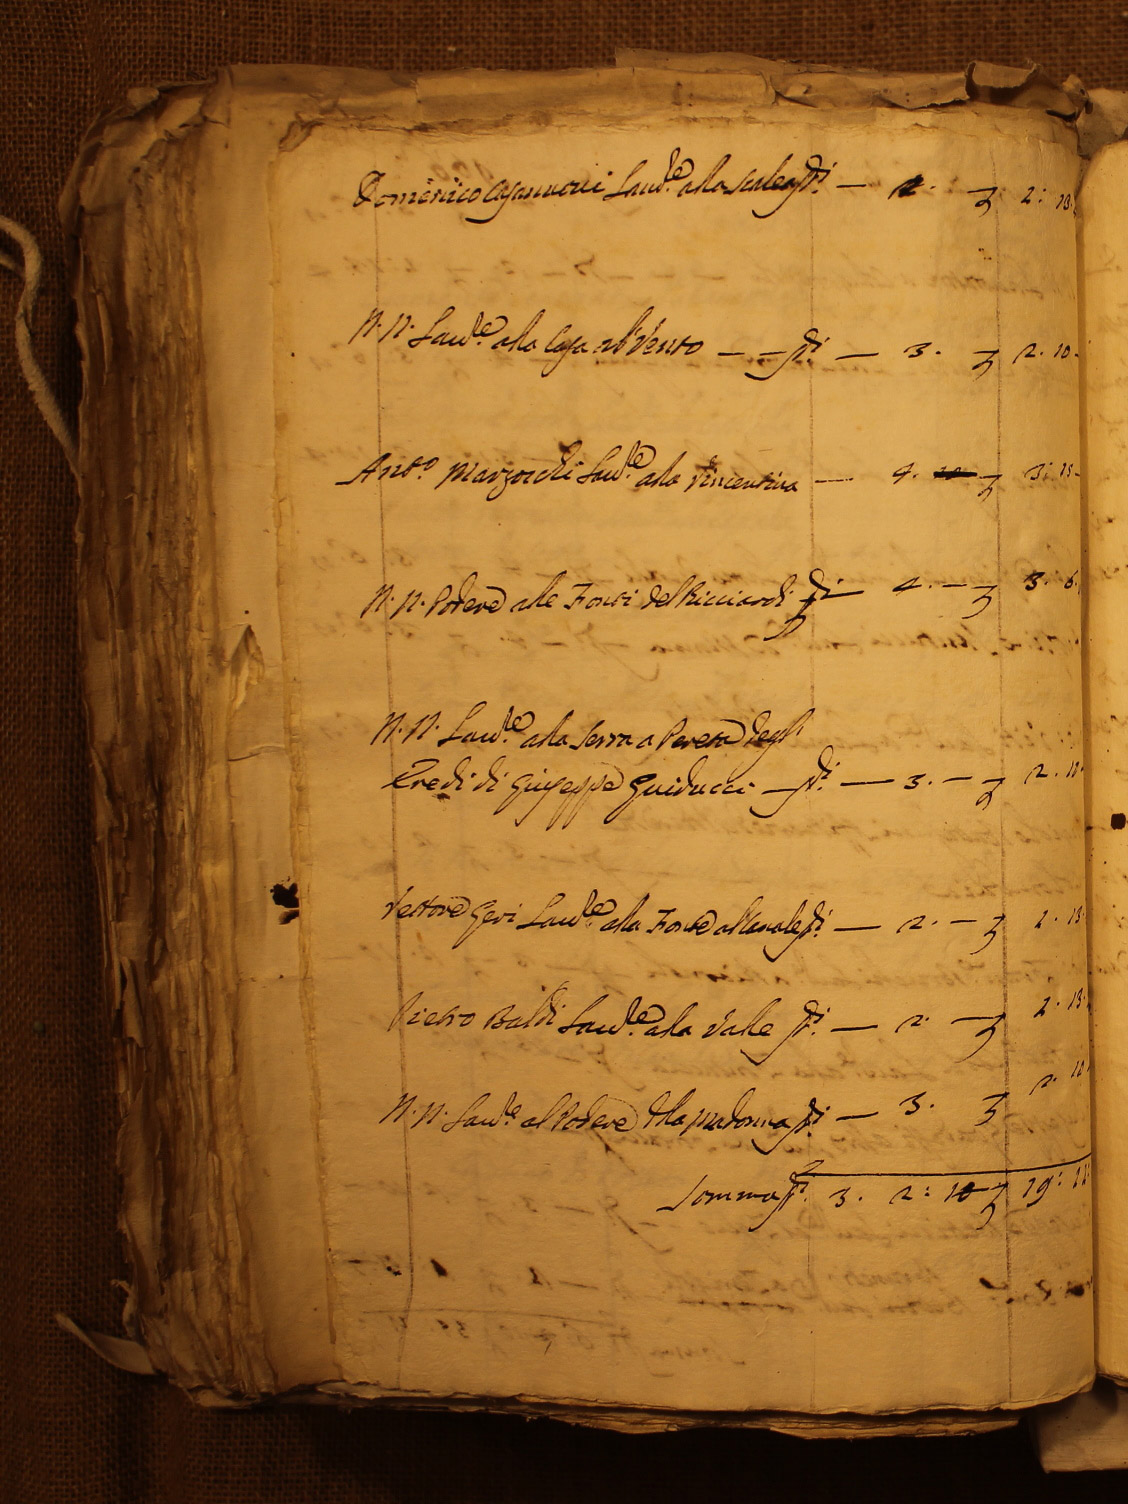 Domenico Casanuovi Lavre. alla Scala st. — 2. — 2: 13
N. N. Lavre. alla Casa al Vento — — st. — 3. 2. 10 -
Anto. Marzocchi Lavre. alla Vincentina — 4. 3: 15 -
N. N. Podere alle Fonti del Ricciardi st. — 4. — 3. 6
N. N. Lavre. alla Serra a Pereta degli
Eredi di Giuseppe Guiducci — st. — 3. — 2. 10
Vettorio Geri Lavre. alla Fonte al st. — 2. — 2. 13
Pietro Baldi Lavre. alla Valle st. — 2. — 2. 13
N. N. Lavre. al Podere della Madonna st. — 3. 2. 10
Somma st. 3. 2: 19: